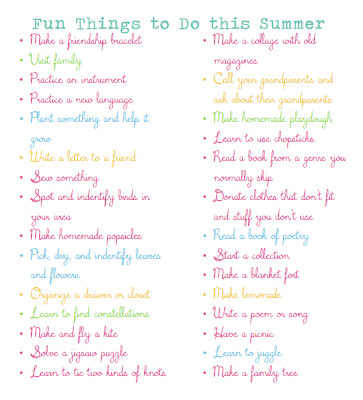 Fun Things to Do this Summer
• Make a friendship bracelet
• Visit family
• Practice an instrument
• Practice a new language
• Plant something and help it
grow
• Write a letter to a friend
• Sew something
• Spot and indentify birds in
your area
• Make homemade popsicles
• Pick, dry, and indentify leaves
and flowers
• Organize a drawer or closet
• Learn to find constellations
• Make and fly a kite
• Solve a jigsaw puzzle
• Learn to tie two kinds of knots
• Make a collage with old
magazines
• Call your grandparents and
ask about their grandparents
• Make homemade playdough
• Learn to use chopsticks
• Read a book from a genre you
normally skip
• Donate clothes that don't fit
and stuff you don't use
• Read a book of poetry
• Start a collection
• Make a blanket fort
• Make lemonade
• Write a poem or song
• Have a picnic
• Learn to juggle
• Make a family tree